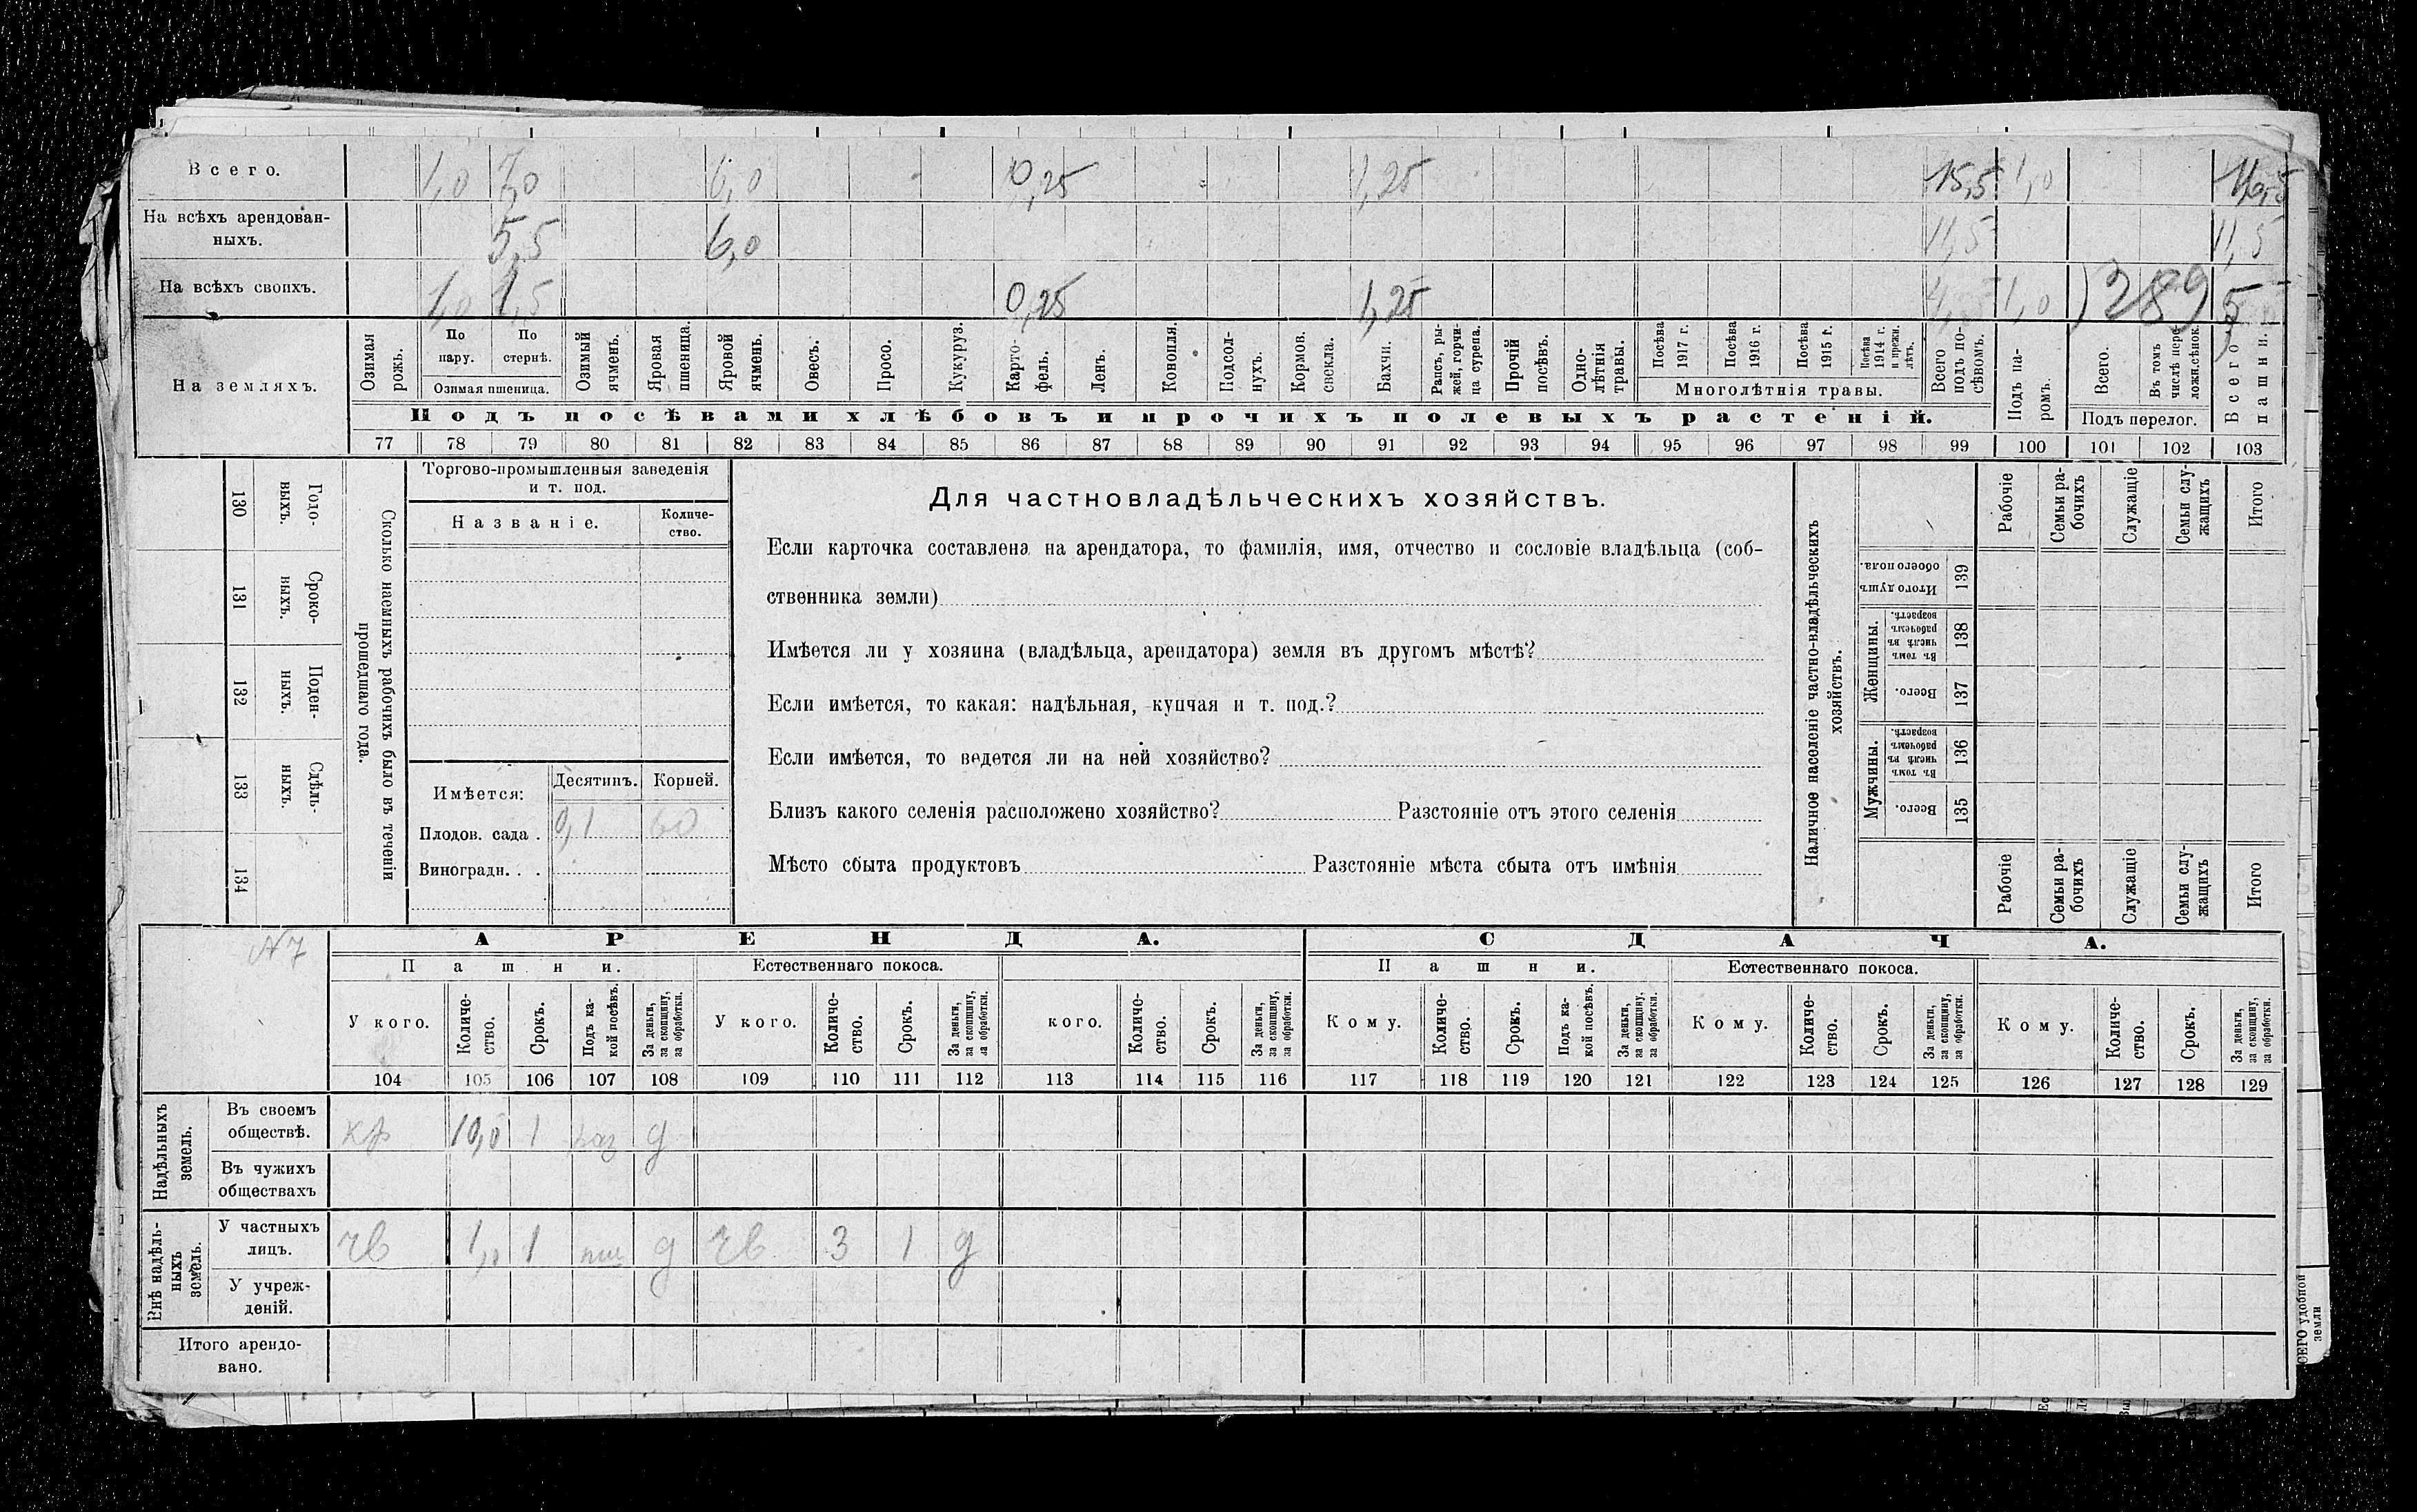 Всего. 1,0 7,0 6,0 0,25 1,25 15,5 1,0 16,5
На всѣхъ арендован-
ныхъ. 5,5 6,0 11,5 11,5
На всѣхъ своихъ. 1,0 1,5 0,25 1,25 1,0 289 5
На земляхъ.
Озимая рожь.
По пару.
По стернѣ.
Озимая пшеница.
Озимый ячмень.
Яровая пшеница.
Яровой ячмень.
Овесъ.
Просо.
Кукуруз.
Карто-
фель.
Ленъ.
Конопля.
Подсол-
нухъ.
Кормов. свекла.
Бахчи.
Рапсъ, ры-
жей, горчи-
ца сурепа.
Прочій посѣвъ.
Одно-
лѣтнія травы.
Посѣва 1917 г.
Посѣва 1916 г.
Посѣва 1915 г.
Посѣва 1914 г. и прежн. лѣтъ.
Многолѣтнія травы.
Всего подъ по-
сѣвомъ.
Подъ па-
ромъ.
Всего.
Въ томъ числѣ пере
ложн.сѣнок.
Подъ перелог.
Всего пашни.
Подъ посѣвами хлѣбовъ и прочихъ полевыхъ растеній.
77 78 79 80 81 82 83 84 85 86 87 88 89 90 91 92 93 94 95 96 97 98 99 100 101 102 103
130 Голо-
ныхъ.
131 Сроко-
ныхъ.
132 Поден-
ныхъ.
133 Сдѣль-
ныхъ.
134
Сколько наемныхъ рабочихъ было въ теченіи
прошедшаго года.
Торгово-промышленныя заведенія
и т. под.
Названіе.
Количе-
ство.
Имѣется: Десятинъ. Корней.
Плодов. сада . 0,1 60
Виноградн. . .
Для частновладѣльческихъ хозяйствъ.
Если карточка составлена на арендатора, то фамилія, имя, отчество и сословіе владѣльца (соб-
ственника земли)
Имѣется ли у хозяина (владѣльца, арендатора) земля въ другомъ мѣстѣ?
Если имѣется, то какая: надѣльная, купчая и т. под.?
Если имѣется, то ведется ли на ней хозяйство?
Близъ какого селенія расположено хозяйство? Разстояніе отъ этого селенія
Мѣсто сбыта продуктовъ Разстояніе мѣста сбыта отъ имѣнія
Наличное населеніе частно-владѣльческихъ
хозяйствъ.
Рабочіе
Семьи ра-
бочихъ
Служащіе
Семьи слу-
жащихъ
Итого
Итого душъ обоего пола. 139
Женщины.
Въ томъ числѣ въ рабочемъ возрастѣ. 138
Всего. 137
Мужчины.
Въ томъ числѣ въ рабочемъ возрастѣ. 136
Всего. 135
Рабочіе
Семьи ра-
бочихъ
Служащіе
Семьи слу-
жащихъ
Итого
N 7
АРЕНДА. СДАЧА.
Пашни. Естественнаго покоса. Пашни. Естественнаго покоса.
У кого.
Количе-
ство.
Срокъ.
Подъ ка-
кой посѣвъ.
За деньги, за скопщину, за обработки.
У кого.
Количе-
ство.
Срокъ.
За деньги, за скопщину, за обработки.
кого.
Количе-
ство.
Срокъ.
За деньги, за скопщину, за обработки.
Кому.
Количе-
ство.
Срокъ.
Подъ ка-
кой посѣвъ.
За деньги, за скопщину, за обработки.
Кому.
Количе-
ство.
Срокъ.
За деньги, за скопщину, за обработки.
Кому.
Количе-
ство.
Срокъ.
За деньги, за скопщину, за обработки.
104 105 106 107 108 109 110 111 112 113 114 115 116 117 118 119 120 121 122 123 124 125 126 127 128 129
Надѣльныхъ
земель.
Въ своемъ
обществѣ. кр 10,0 1 раз д
Въ чужихъ
обществахъ
Внѣ надѣль-
ныхъ
земель.
У частныхъ
лицъ. чв 1,0 1 пш д чв 3 1 д
У учреж-
деній.
Итого арендо-
вано.
ВСЕГО удобной
земли